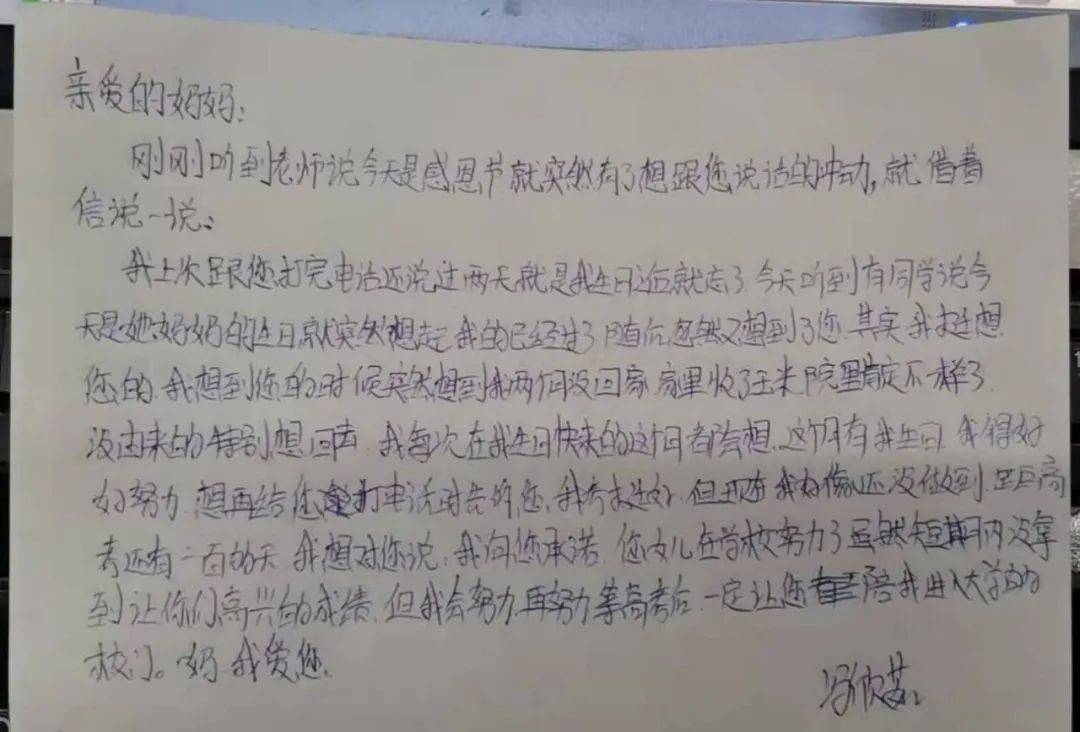 亲爱的妈妈:
刚刚听到老师说今天是感恩节就突然有了想跟您说话的冲动,就借着
信说一说:
我上次跟您打完电话还说过两天就是我生日近就忘了今天听到有同学说今
天是她妈妈的生日就突然想起我的已经过了随后忽然又想到了您.其实我挺想
您的.我想到您的时候突然想到我两个月没回家家里收了玉米院里肯定不一样了
没由来的特别想回去.我每次在我生日快来的这个月都会想.这个月有我生日我得好
好努力.想再给您打电话时告诉您,我考挺好.但现在我好像还没做到.距高
考还有一百的天.我想对您说:我向您承诺.您女儿在学校努力了虽然短期内没拿
到让你们高兴的成绩.但我会努力再努力等高考后.一定让您陪我进入大学的
校门。妈我爱您.
冯欣